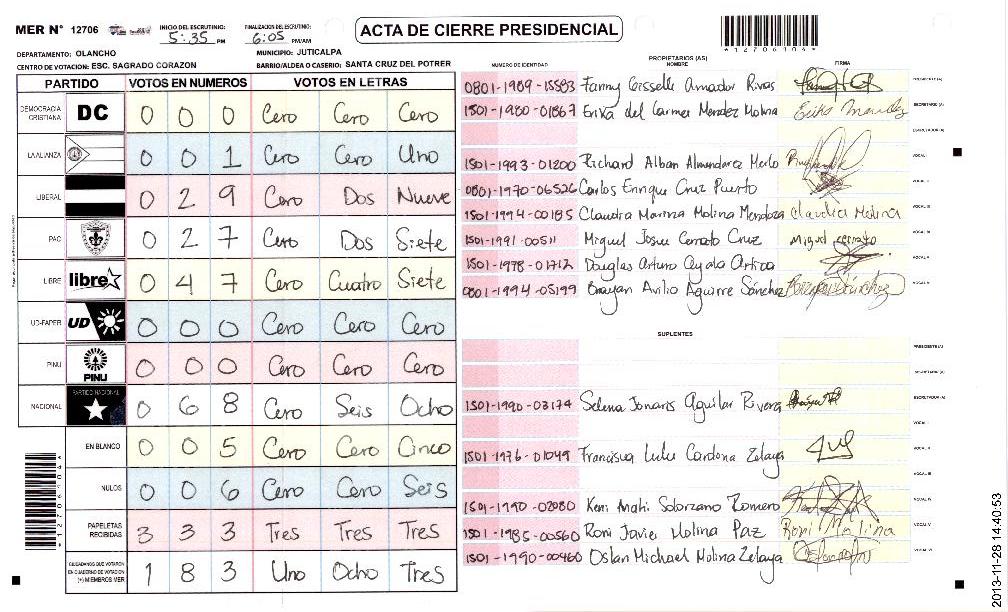 MER N° 12706
INICIO DEL ESCRUTINIO: 5:35 PM
FINALIZACION DEL ESCRUTINIO: 6:05 PM/AM
ACTA DE CIERRE PRESIDENCIAL
*12706104*
DEPARTAMENTO: OLANCHO
MUNICIPIO: JUTICALPA
CENTRO DE VOTACION: ESC. SAGRADO CORAZON
BARRIO/ALDEA O CASERIO: SANTA CRUZ DEL POTRER
PARTIDO VOTOS EN NUMEROS VOTOS EN LETRAS
DEMOCRACIA CRISTIANA DC 0 0 0 Cero Cero Cero
LA ALIANZA 0 0 1 Cero Cero Uno
LIBERAL 0 2 9 Cero Dos Nueve
PAC 0 2 7 Cero Dos Siete
LIBRE libre 0 4 7 Cero Cuatro Siete
UD-FAPER UD 0 0 0 Cero Cero Cero
PINU PINU 0 0 0 Cero Cero Cero
NACIONAL PARTIDO NACIONAL 0 6 8 Cero Seis Ocho
EN BLANCO 0 0 5 Cero Cero Cinco
NULOS 0 0 6 Cero Cero Seis
PAPELETAS RECIBIDAS 3 3 3 Tres Tres Tres
CIUDADANOS QUE VOTARON EN CUADERNO DE VOTACION (+) MIEMBROS MER 1 8 3 Uno Ocho Tres
*12706104*
PROPIETARIOS (AS)
NUMERO DE IDENTIDAD NOMBRE FIRMA
0801-1989-15583 Fanny Gisselle Amador Rivas PRESIDENTE(A)
1501-1980-01867 Erika del Carmen Mendez Molina Erika Mendez SECRETARIO (A)
ESCRUTADOR (A)
1501-1993-01200 Richard Alban Almendarez Merlo VOCAL I
0801-1970-06526 Carlos Enrique Cruz Puerto VOCAL II
1501-1994-00185 Claudia Marina Molina Mendoza Claudia Molina VOCAL III
1501-1991-00511 Miguel Josue Cerrato Cruz Miguel cerrato VOCAL IV
1501-1978-01712 Douglas Arturo Ayala Artica VOCAL V
0801-1994-05199 Brayan Avilio Aguirre Sánchez VOCAL VI
SUPLENTES
PRESIDENTE (A)
SECRETARIO (A)
1501-1996-03174 Selena Jonaris Aguilar Rivera ESCRUTADOR (A)
VOCAL I
1501-1976-01049 Francisca Lulu Cardona Zelaya VOCAL II
VOCAL III
1501-1990-02080 Keni Anahi Solorzano Romero VOCAL IV
1501-1985-00560 Roni Javier Molina Paz Roni Molina VOCAL V
1501-1990-00460 Oslan Michael Molina Zelaya VOCAL VI
2013-11-28 14:40:53